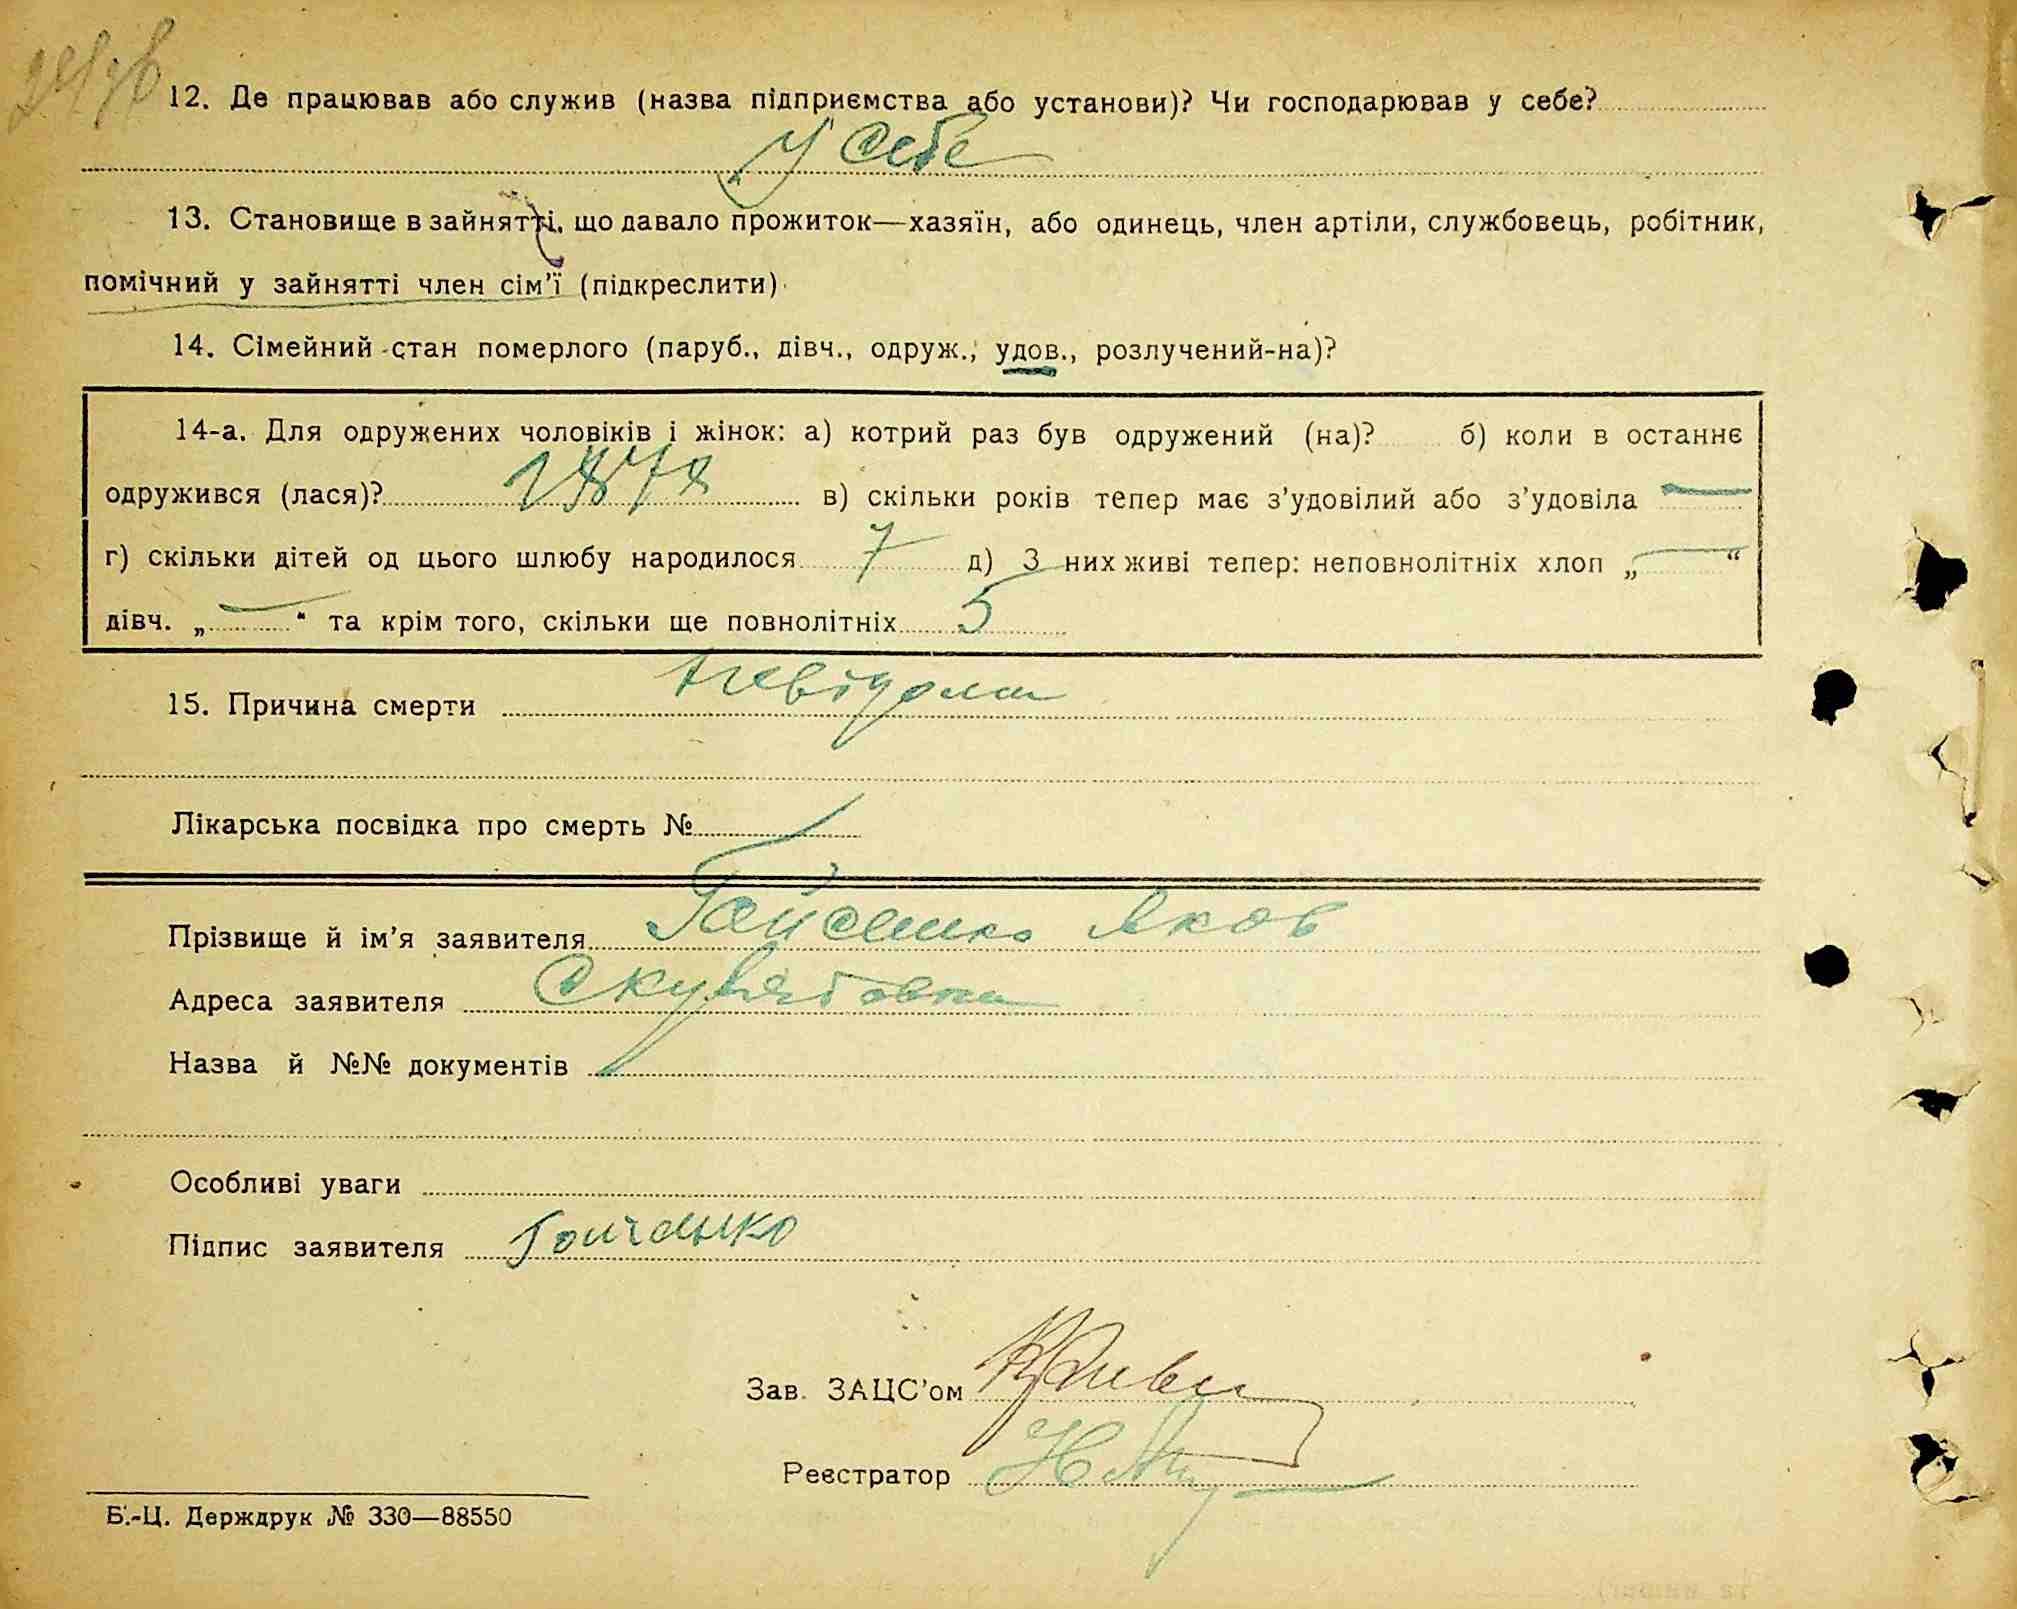 12. Де працював або служив (назва підприємства або установи)? Чи господарював у себе?
У себе
13. Становище в зайнятті, що давало прожиток—хазяїн, або одинець, член артіли, службовець, робітник,
помічний у зайнятті член сім'ї (підкреслити)
14. Сімейний стан померлого (паруб., дівч., одруж., удов., розлучений-на)?
14-а. Для одружених чоловіків і жінок: а) котрий раз був одружений (на)? б) коли в останнє
одружився (лася)? 1878 в) скільки років тепер має з'удовілий або з'удовіла —
г) скільки дітей од цього шлюбу народилося 7 д) З них живі тепер: неповнолітніх хлоп „—“
дівч. „—“ та крім того, скільки ще повнолітніх 5
15. Причина смерти невідома
Лікарська посвідка про смерть №
Прізвище й ім'я заявителя Гайченко Яков
Адреса заявителя
Назва й №№ документів
Особливі уваги
Підпис заявителя
Зав. ЗАЦС'ом
Реєстратор
Б.-Ц. Держдрук № 330—88550